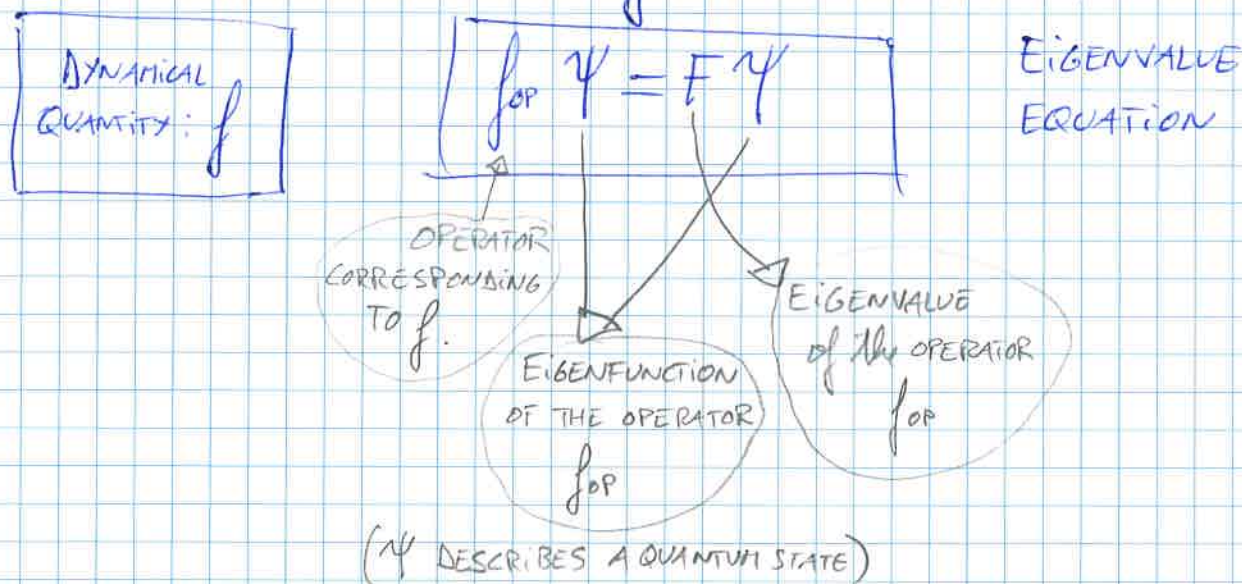 DYNAMICAL
QUANTITY: f
f_OP Ψ = F Ψ
EIGENVALUE
EQUATION
OPERATOR
CORRESPONDING
TO f.
EIGENFUNCTION
OF THE OPERATOR
f_OP
EIGENVALUE
of the OPERATOR
f_OP
(Ψ DESCRIBES A QUANTUM STATE)